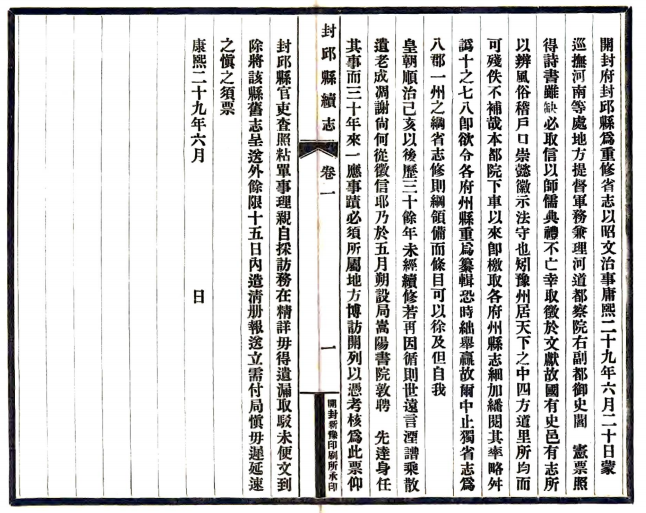 開封府封邱縣爲重修省志以昭文治事庸熙二十九年六月二十日蒙
巡撫河南等處地方提督軍務兼理河道都察院右副都御史閻　憲票照
得詩書雖缺必取信以師儒典禮不亡幸取徵於文獻故國有史邑有志所
以辨風俗稽戶口崇懿徽示法守也矧豫州居天下之中四方道里所均而
可殘佚不補哉本都院下車以來卽檄取各府州縣志細加繙閱其率略舛
譌十之七八卽欲令各府州縣重爲纂輯恐時絀舉贏故爾中止獨省志爲
八郡一州之綱省志修則綱領備而條目可以徐及但自我
皇朝順治己亥以後歷三十餘年未經續修若再因循則世遠言湮譜乘散
遺老成凋謝尙何從徵信耶乃於五月朔設局嵩陽書院敦聘　先達身任
其事而三十年來一應事蹟必須所屬地方博訪開列以憑考核爲此票仰
封邱縣續志
卷一
一
開封新豫印刷所承印
封邱縣官吏查照粘單事理親自採訪務在精詳毋得遺漏取駁未便文到
除將該縣舊志呈送外餘限十五日內造清册報送立需付局愼毋遲延速
之愼之須票
康熙二十九年六月　　　　日